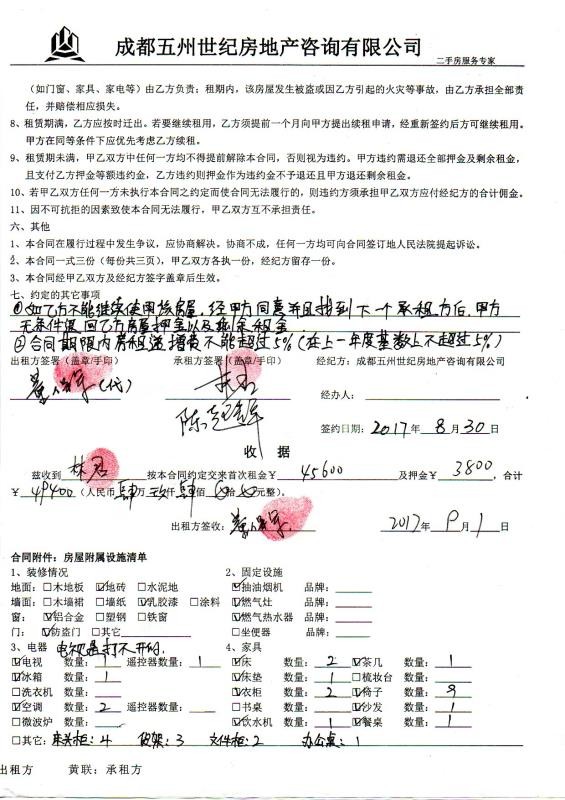 成都五州世纪房地产咨询有限公司
二手房服务专家
（如门窗、家具、家电等）由乙方负责；租期内，该房屋发生被盗或因乙方引起的火灾等事故，由乙方承担全部责
任，并赔偿相应损失。
8、租赁期满，乙方应按时迁出。若要继续租用，乙方须提前一个月向甲方提出续租申请，经重新签约后方可继续租用。
甲方在同等条件下应优先考虑乙方续租。
9、租赁期未满，甲乙双方中任何一方均不得提前解除本合同，否则视为违约。甲方违约需退还全部押金及剩余租金，
且支付乙方押金等额违约金，乙方违约则押金作为违约金不予退还且甲方退还剩余租金。
10、若甲乙双方任何一方未执行本合同之约定而使合同无法履行的，则违约方须承担甲乙双方应付经纪方的合计佣金。
11、因不可抗拒的因素致使本合同无法履行，甲乙双方互不承担责任。
六、其他
1、本合同在履行过程中发生争议，应协商解决。协商不成，任何一方均可向合同签订地人民法院提起诉讼。
2、本合同一式三份（每份共三页），甲乙双方各执一份，经纪方留存一份。
3、本合同经甲乙双方及经纪方签字盖章后生效。
七、约定的其它事项
①如乙方不能继续使用该房屋，经甲方同意并且找到下一个承租方后，甲方
无条件退回乙方房屋押金以及剩余租金
②合同期限内房租递增长不能超过5%（在上一年度基数上不超过5%）
出租方签署（盖章/手印） 承租方签署（盖章/手印） 经纪方：成都五州世纪房地产咨询有限公司
（代）
经办人：
签约日期：2017年8月30日
收 据
兹收到 林君 按本合同约定交来首次租金￥45600及押金￥3800，合计
￥49400（人民币肆万玖仟肆佰 拾 元整）。
出租方签收： 2017年9月1日
合同附件：房屋附属设施清单
1、装修情况 2、固定设施
地面：□木地板 ☑地砖 □水泥地 ☑抽油烟机 品牌：
墙面：□木墙裙 □墙纸 ☑乳胶漆 □涂料 ☑燃气灶 品牌：
窗： ☑铝合金 □塑钢 □铁窗 ☑燃气热水器 品牌：
门： ☑防盗门 □其它 □坐便器 品牌：
3、电器 电视是打不开的 4、家具
☑电视 数量：1 遥控器数量：1 ☑床 数量：2 ☑茶几 数量：1
☑冰箱 数量：1 ☑床垫 数量：1 □梳妆台 数量：
□洗衣机 数量： ☑衣柜 数量：2 ☑椅子 数量：9
☑空调 数量：2 遥控器数量： □书桌 数量： ☑沙发 数量：1
□微波炉 数量： ☑饮水机 数量：1 ☑餐桌 数量：1
□其它：床头柜：4 货架：3 文件柜：2 办公桌：1
出租方 黄联：承租方